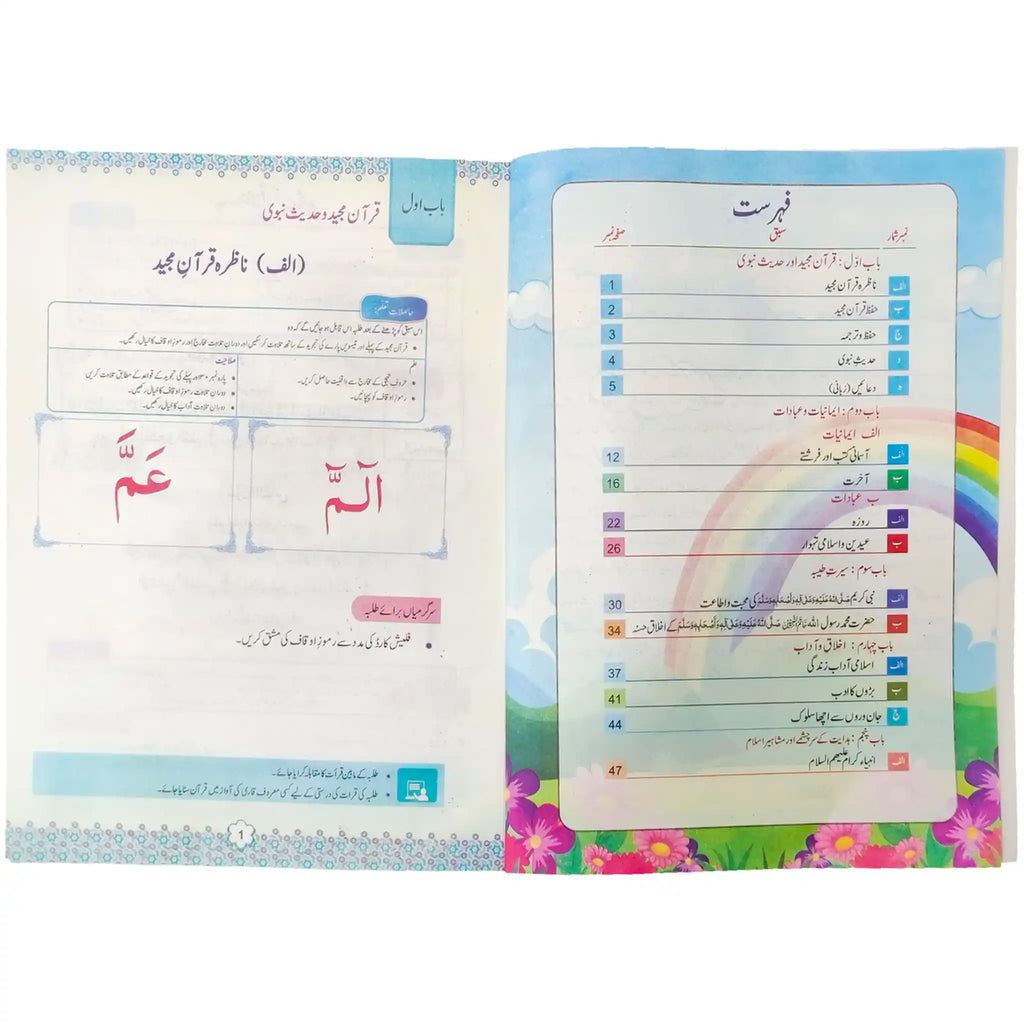 فہرست
نمبر شمار سبق صفحہ نمبر
باب اوّل: قرآن مجید اور حدیث نبوی
الف ناظرہ قرآن مجید 1
ب حفظ قرآن مجید 2
ج حفظ و ترجمہ 3
د حدیثِ نبوی 4
ہ دعائیں (زبانی) 5
باب دوم: ایمانیات و عبادات
الف ایمانیات
الف آسمانی کتب اور فرشتے 12
ب آخرت 16
ب عبادات
الف روزہ 22
ب عیدین و اسلامی تہوار 26
باب سوم: سیرتِ طیبہ
الف نبی کریم صَلَّى اللهُ عَلَيْهِ وَعَلَى آلِهِ وَأَصْحَابِهِ وَسَلَّمَ کی محبت و اطاعت 30
ب حضرت محمد رسول اللہ خَاتَمُ النَّبِيِّيْنَ صَلَّى اللهُ عَلَيْهِ وَعَلَى آلِهِ وَأَصْحَابِهِ وَسَلَّمَ کے اخلاق حسنہ 34
باب چہارم: اخلاق و آداب
الف اسلامی آداب زندگی 37
ب بڑوں کا ادب 41
ج جان وروں سے اچھا سلوک 44
باب پنجم: ہدایت کے سرچشمے اور مشاہیر اسلام
الف انبیاء کرام علیہم السلام 47
باب اول
قرآن مجید و حدیث نبوی
(الف) ناظرہ قرآنِ مجید
حاصلاتِ تعلّم:
اس سبق کو پڑھنے کے بعد طلبہ اس قابل ہو جائیں گے کہ وہ
• قرآن مجید کے پہلے اور تیسویں پارے کی تجوید کے ساتھ تلاوت کر سکیں اور دوران تلاوت مخارج اور رموز اوقاف کا خیال رکھیں۔
علم
• حروف تہجی کے مخارج سے واقفیت حاصل کریں۔
• رموز اوقاف کو پہچانیں۔
صلاحیت
• پارہ نمبر ۳۰ اور پہلے کی تجوید کے قواعد کے مطابق تلاوت کریں
• دوران تلاوت رموز اوقاف کا خیال رکھیں۔
• دوران تلاوت آداب کا خیال رکھیں۔
الٓمّٓ
عَمَّ
سرگرمیاں برائے طلبہ
• فلیش کارڈ کی مدد سے رموز اوقاف کی مشق کریں۔
• طلبہ کے مابین قرأت کا مقابلہ کرایا جائے۔
• طلبہ کی قرات کی درستی کے لیے کسی معروف قاری کی آواز میں قرآن سنایا جائے۔
1